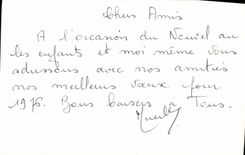 Chers Amis
A l'occasion du Nouvel an
les enfants et moi même vous
adressons avec nos amitiés
nos meilleurs vœux pour
1975. Bons baisers à Tous.